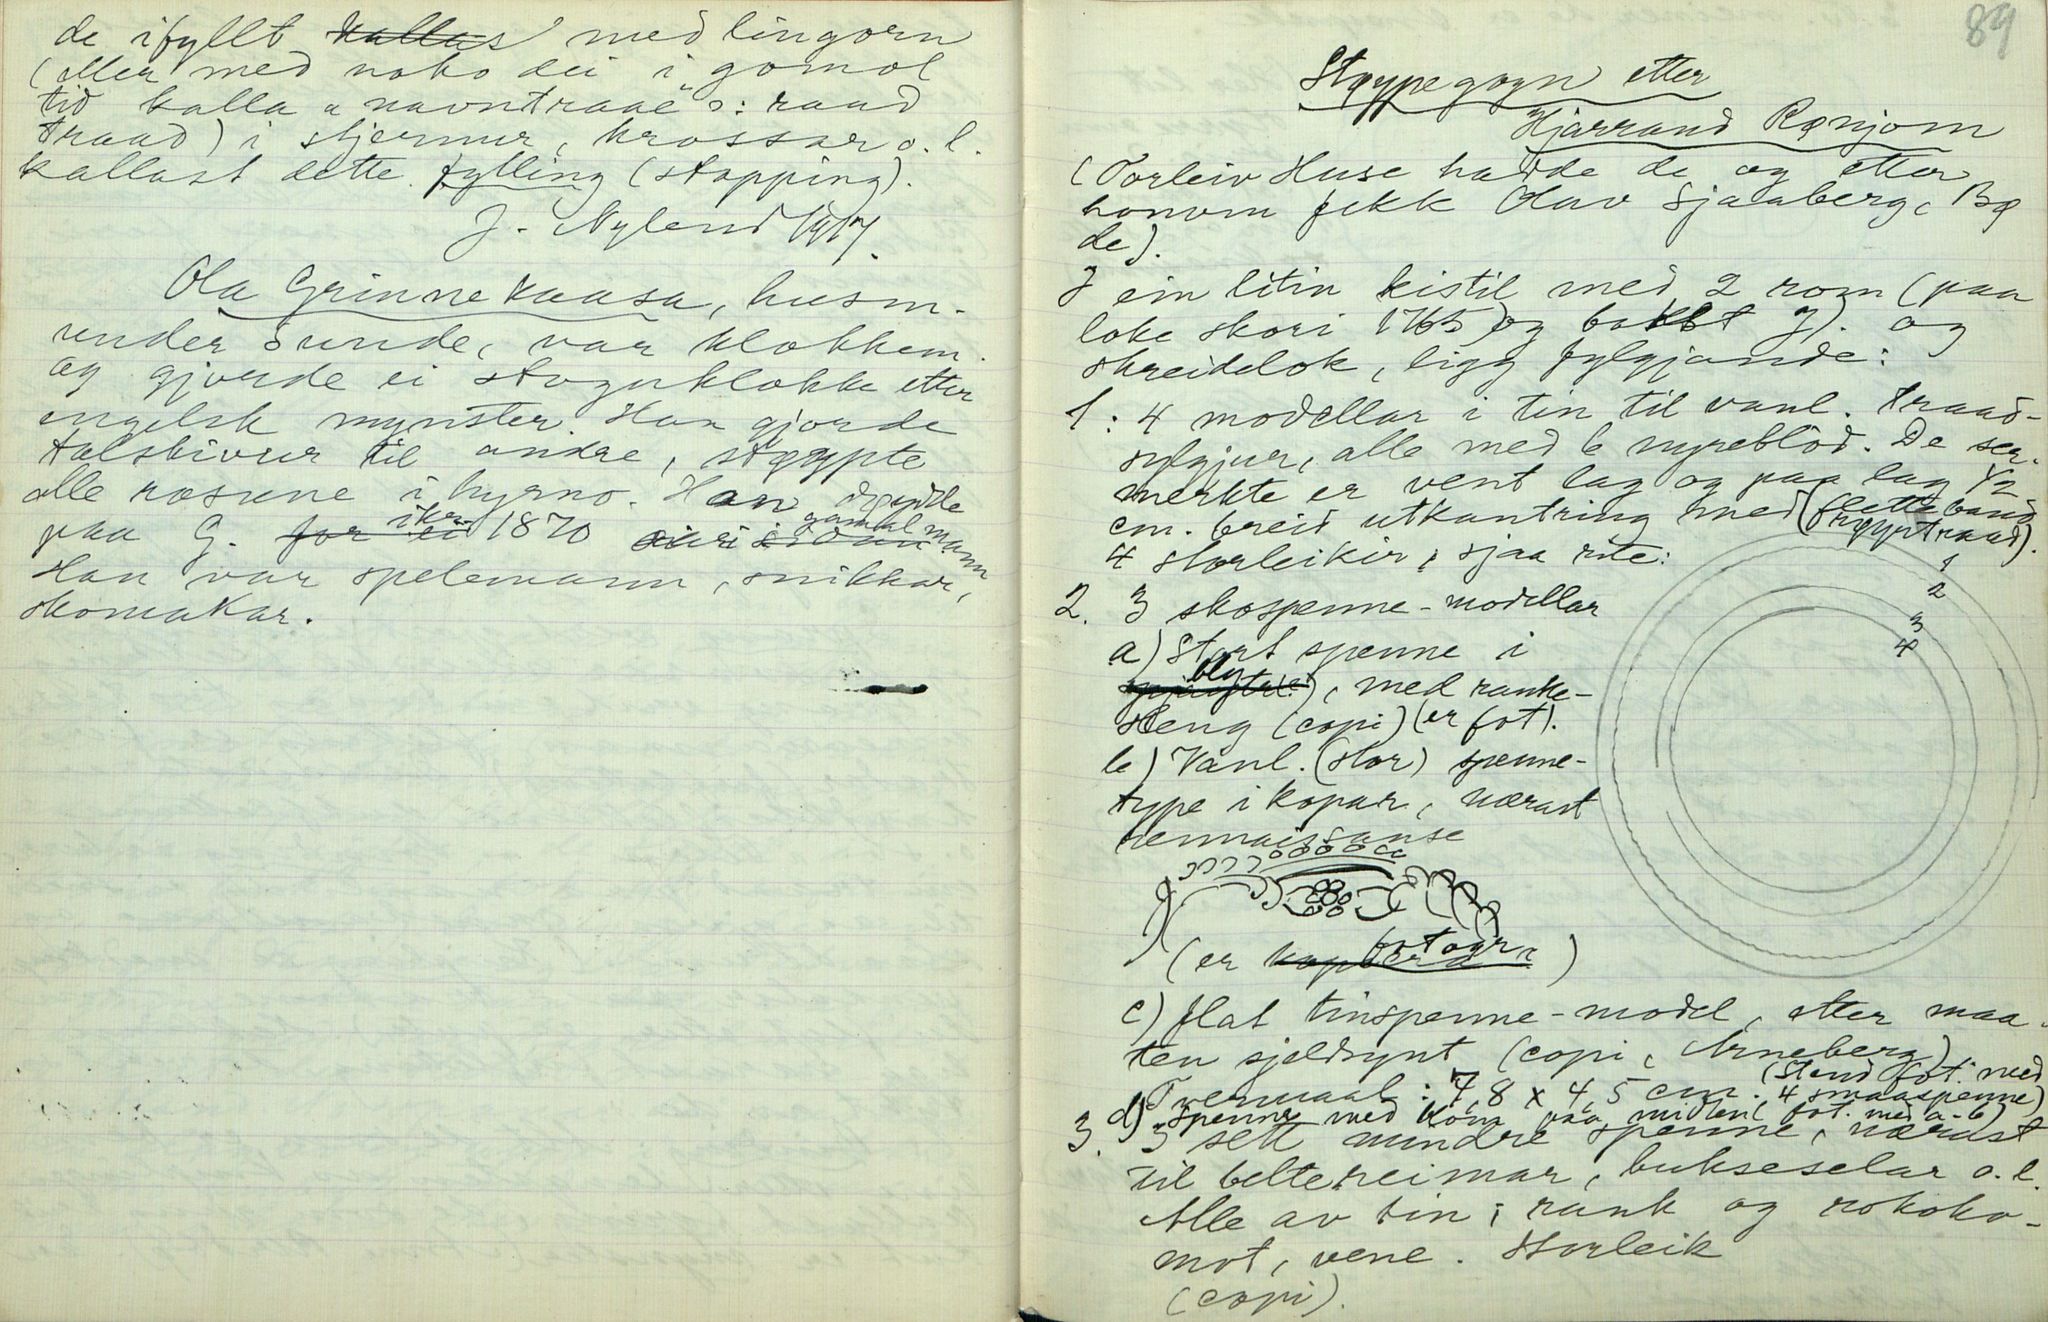 de ifyllt kallas med lingorn
(eller med noko dei i gomol
tid kalla "navntraae" ɔ: raad
traad) i stjernur, krossar o. l.
kallast dette fylling (stopping).
J. Nylend 1917.
Ola Grinnekaasa, husm.
under Sunde, var klokkem.
og gjorde ei stoguklokke etter
engelsk mynster. Han gjorde
talskivur til andre, støypte
alle rosune i hyrno. Han døydde
paa G. for ei ikr. 1870 gamal mann
Han var spelemann, snikkar,
skomakar.
89
Støypegogn etter
Hjarrand Rønjom
(Torleiv Huse hadde de og etter
honom fekk Olav Sjaaberg, Bø
de).
I ein litin kistil med 2 rom (paa
loke skori 1765) og bokst J). og
skreidelok, ligg fylgjande:
1: 4 modellar i tin til vanl. traad-
sylgjur, alle med 6 nyreblod. De ser-
merkte er vent lag og paa lag 1/2
cm. breid utkantring med (flettaband
frøyrtraad).
4 storleikir, sjaa rite:
1
2
3
4
2. 3 skospenne-modellar
a) Stort spenne i
bly, med ranke-
steng (copi) (er fot).
b) Vanl. (stor) spenne-
type i kopar, nærast
rennaissanse
(er kopiera fotogr.)
c) flat tinspenne-model, etter maa-
ten sjeldsynt (copi, Arneberg)
Tvermaal: 7,8 x 4,5 cm. (Stend fot. med
4 smaaspenne)
d) Spenne med kom paa midten (fot. med a-b)
3. 3 sett mindre spenne, nærast
til beltereimar, bukseselar o. l.
Alle av tin i rank og rokoko-
mot, vene. Storleik
(copi).